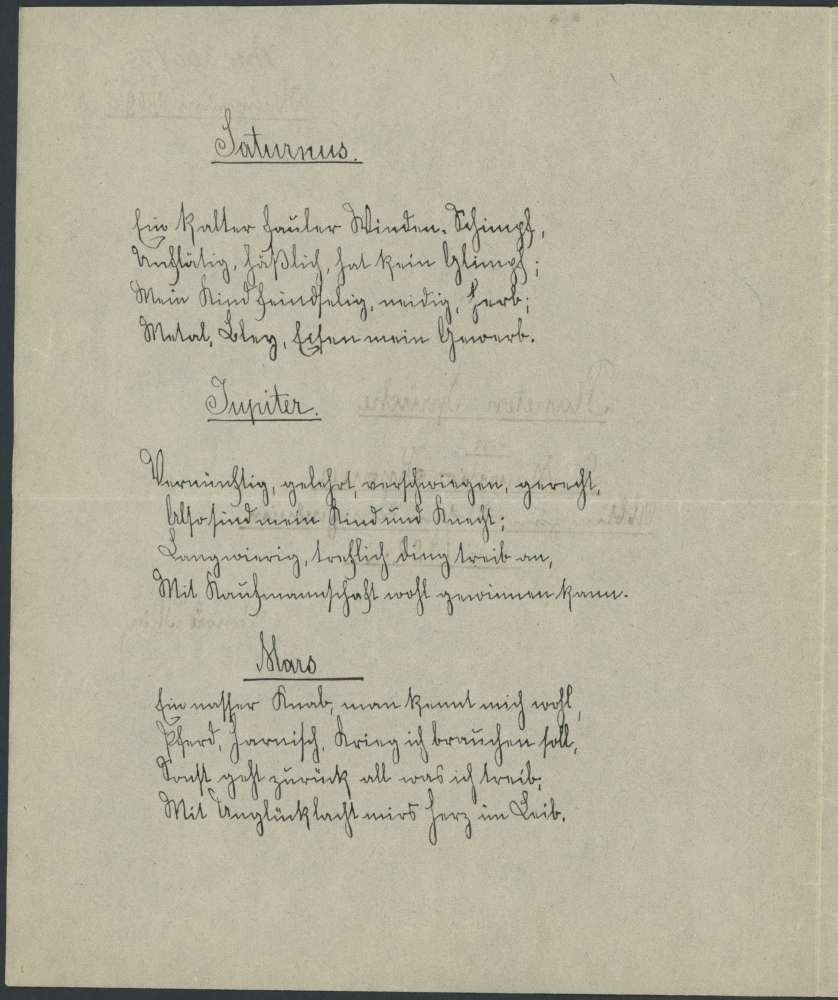 Saturnus.
Ein kalter fauler Winden-Schimpf,
Unflätig, häßlich, hat kein Glimpf;
Mein Kind feindselig, neidig, herb;
Metal, Bley, Eisen mein Gewerb.
Jupiter.
Vernünftig, gelehrt, verschwiegen, gerecht,
Also sind mein Kind und Knecht;
Langwierig, trefflich ding treib an,
Mit Kaufmannschaft wohl gewinnen kann.
Mars
Ein nasser Knab, man kennt mich wohl,
Pferd, Harnisch, Krieg ich brauchen soll,
Sonst geht zurück all was ich treib;
Mit Unglück lacht mirs Herz im Leib.